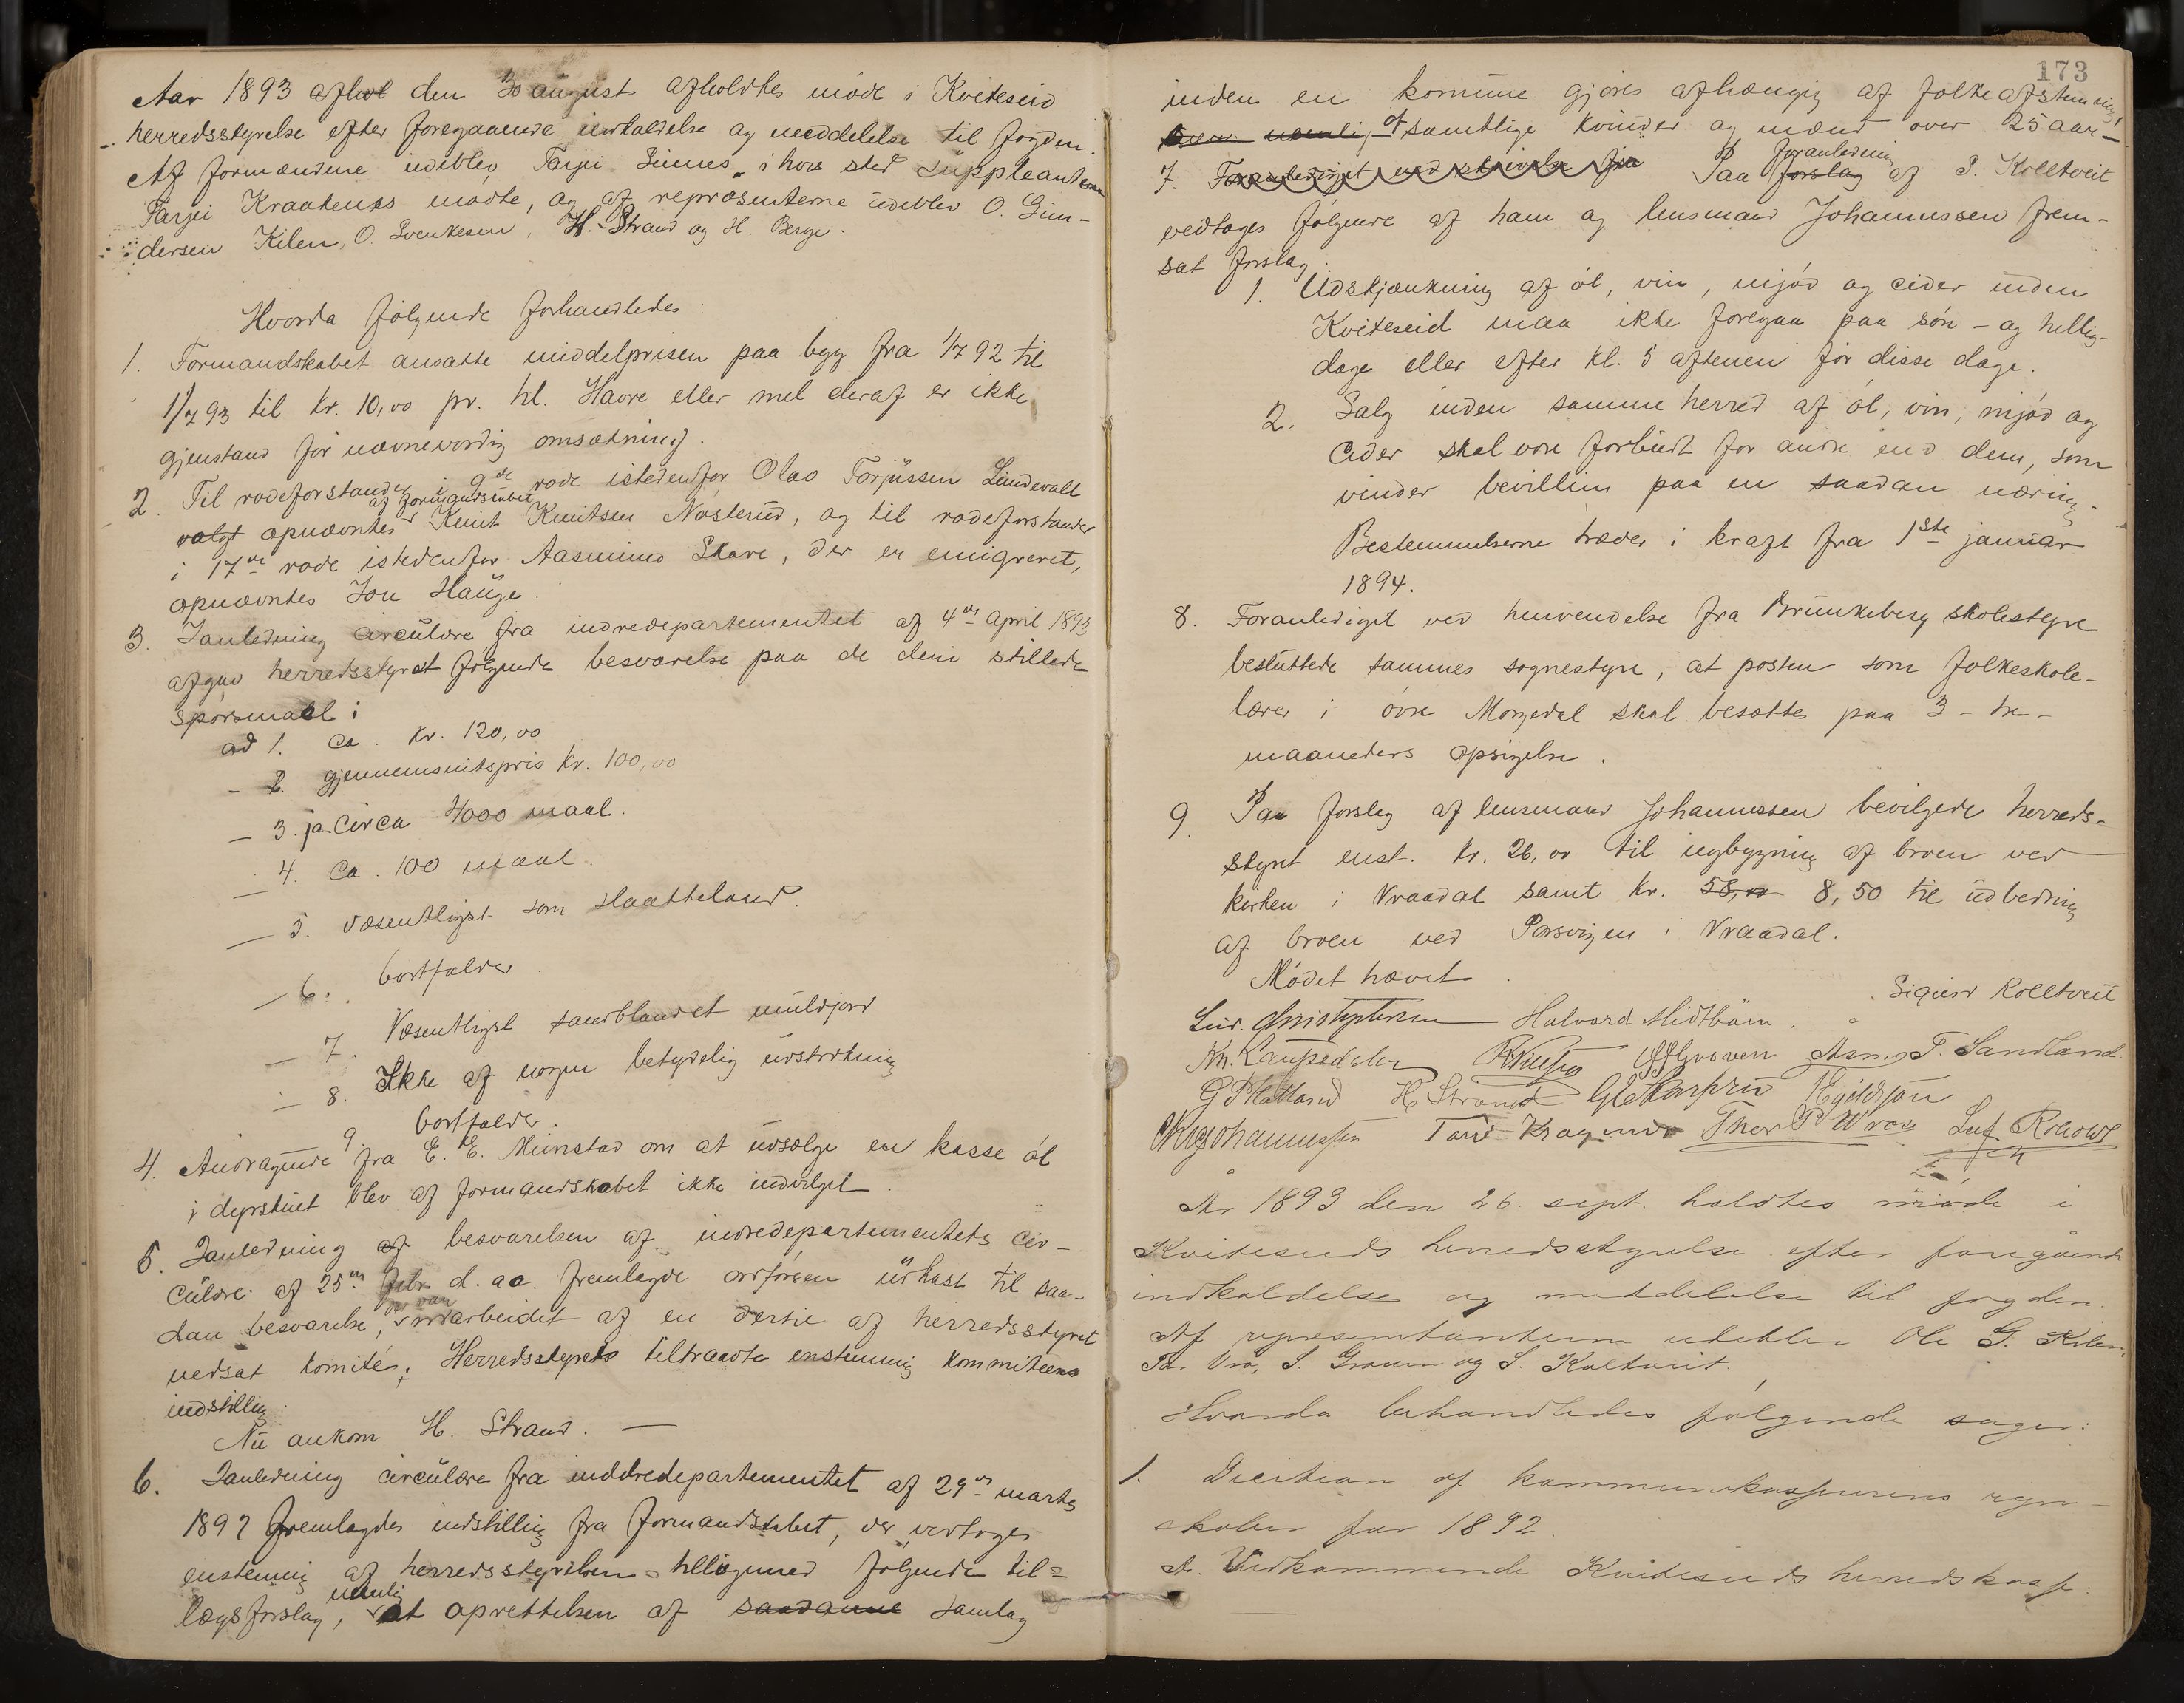 Aar 1893 afhol den 30 august afholdtes møde i Kviteseid
herredsstyrelse efter foregaaende indkaldelse og meddelelse til fogden.
Af formændene udeblev Tarjei Sinnes, i hvis sted suppleanten
Tarjei Kraakenes mødte, og af repræsenterne udeblev O. Gun-
dersen Kilen, O. Svenkesen, H. Strand og H. Berge.
Hvorda følgende forhandledes:
1. Formandskabet ansatte middelprisen paa byg fra 1/7 92 til
1/7 93 til kr. 10,00 pr. hl. Havre eller mel deraf er ikke
gjenstand for nævneværdig omsætning.
2. Til rodeforstander i 9de rode istedenfor Olav Torjussen Lundevall
af formandskabet
valgt opnævntes Knut Knutsen Nøsterud, og til rodeforstander
i 17de rode istedenfor Aasmund Skare, der er emigreret,
opnævntes Jon Hauge.
3. Ianledning circulære fra indredepartementet af 4de april 1893
afgav herredsstyret følgende besvarelse paa de deri stillede
spørsmaal:
ad 1. Ca. kr. 120,00
- 2. gjennemsnitspris kr. 100,00
- 3. ja. Circa 4000 maal.
- 4. Ca. 100 maal.
- 5. Væsentligst som slaatteland.
- 6. bortfalder.
- 7. Væsentligst sandblandet muldjord
- 8. Ikke af nogen betydelig udstrækning
9 bortfalder.
4. Andragende fra E. E. Munstad om at udsælge en kasse øl
i dyrskuet blev af formandskabet ikke indvilget.
5. Ianledning af besvarelsen af indredepartementets cir-
culære af 25de febr. d. aa. fremlagde ordføren udkast til saa-
der var
dan besvarelse, udarbeidet af en dertil af herredsstyret
nedsat komité; Herredsstyrets tiltraadte enstemmig kommiteens
indstilling.
Nu ankom H. Strand. —
6. Ianledning circulære fra inddredepartementet af 29de marts
1892 fremlagdes indstilling fra formandskabet, der vedtoges
enstemmig af herredsstyrelsen tilligemed følgende til=
nemlig
lægsforslag, at oprettelsen af saadanne samlag
173
inden en komune gjøres afhængig af folkeafstemning
af samtlige kvinder og mænd over 25 aar —
foranledning
7. Foranlediget ved skrivelse fra Paa forslag af S. Kolltveit
vedtages følgende af ham og lensmand Johannessen frem-
sat forslag:
1. Udskjænkning af øl, vin, mjød og cider inden
Kviteseid maa ikke foregaa paa søn- og hellig-
dage eller efter kl. 5 aftenen før disse dage.
2. Salg inden samme herred af øl, vin, mjød og
cider skal være forbudt for andre end dem, som
vinder bevilling paa en saadan næring.
Bestemmelserne træder i kraft fra 1ste januar
1894.
8. Foranlediget ved henvendelse fra Brunkeberg skolestyre
besluttede sammes sognestyre, at posten som folkeskole-
lærer i øvre Morgedal skal besættes paa 3 - tre -
maaneders opsigelse.
9 Paa forslag af lensmand Johannessen bevilgede herreds-
styret enst. kr. 26,00 til nybygning af broen ved
kirken i Vraadal samt kr. 58,00 8,50 til udbedring
af broen ved Porsvigen i Vraadal.
Mødet hævet.
Sigurd Kolltveit
Halvord Midtbøen.
G P Hatland H Strand
Johannessen
Ar 1893 den 26. sept. holdtes møde i
Kviteseids herredsstyrelse efter foregående
indkaldelse og meddelelse til fogden.
Af representanterne udeblev Ole G. Kilen,
Tor Vrå, S. Groven og S. Kaltveit.
Hvorda behandledes følgende sager:
1. Decition af kommunekasserens regn-
skaber for 1892.
A. Vedkommende Kviteseids herredskasse: